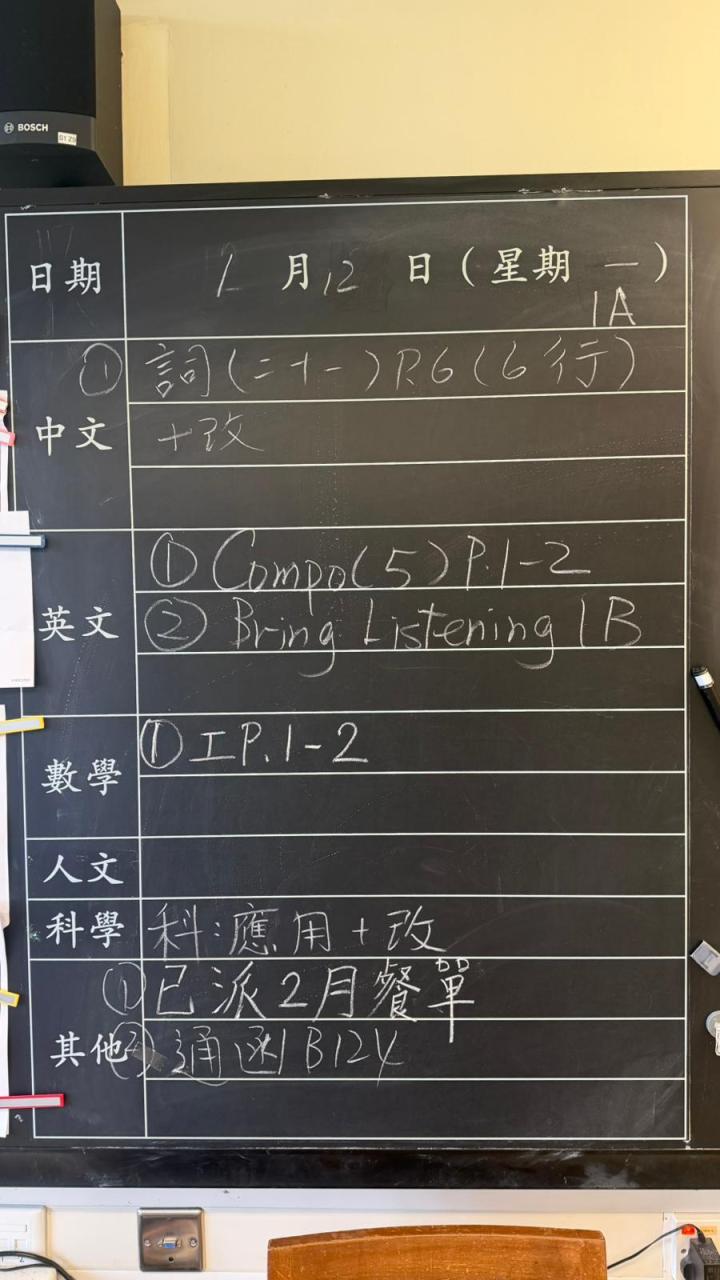 BOSCH
日期 1月12日(星期一)
1A
① 詞(二十一)P.6(6行)
中文 +改
① Compo(5)P.1-2
英文 ② Bring Listening 1B
數學 ① 工P.1-2
人文
科學 科:應用+改
① 已派2月餐單
其他 ② 通函1B124